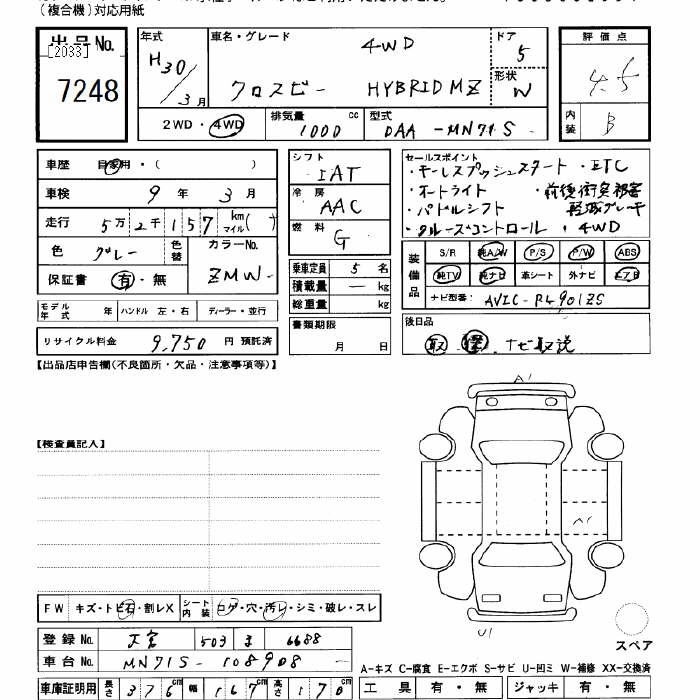 (複合機)対応用紙
出品No.
[2033]
7248
年式 H30/3月
車名・グレード 4WD
クロスビー HYBRID MZ
ドア 5
形状 W
評価点 4.5
内装 B
2WD・4WD
排気量 1000 cc
型式 DAA-MN71S-
車歴 自家用・( )
車検 9年 3月
走行 5万2千157 km マイル( )
色 グレー 色替
カラーNo. ZMW-
保証書 有・無
モデル年式 年 ハンドル 左・右 ディーラー・並行
リサイクル料金 9,750 円 預託済
シフト IAT
冷房 AAC
燃料 G
乗車定員 5 名
積載量 ― kg
総重量 kg
書類期限 月 日
セールスポイント
・キーレスプッシュスタート ・ETC
・オートライト ・前後衝突被害
・パドルシフト 軽減ブレーキ
・クルーズコントロール ・4WD
装備品 S/R 純A/W P/S P/W ABS
純TV 純ナビ 革シート 外ナビ エアB
ナビ型番: AVIC-RL901ZS
後日品
取 保 ナビ取説
【出品店申告欄(不良箇所・欠品・注意事項等)】
【検査員記入】
A1
A1
U1
スペア
FW キズ・トビ石・割レX シート内装 コゲ・穴・汚レ・シミ・破レ・スレ
登録No. 503 6688
車台No. MN71S-108908-
車庫証明用 長さ 376cm 幅 167cm 高さ 170cm
A-キズ C-腐食 E-エクボ S-サビ U-凹ミ W-補修 XX-交換済
工具 有・無 ジャッキ 有・無